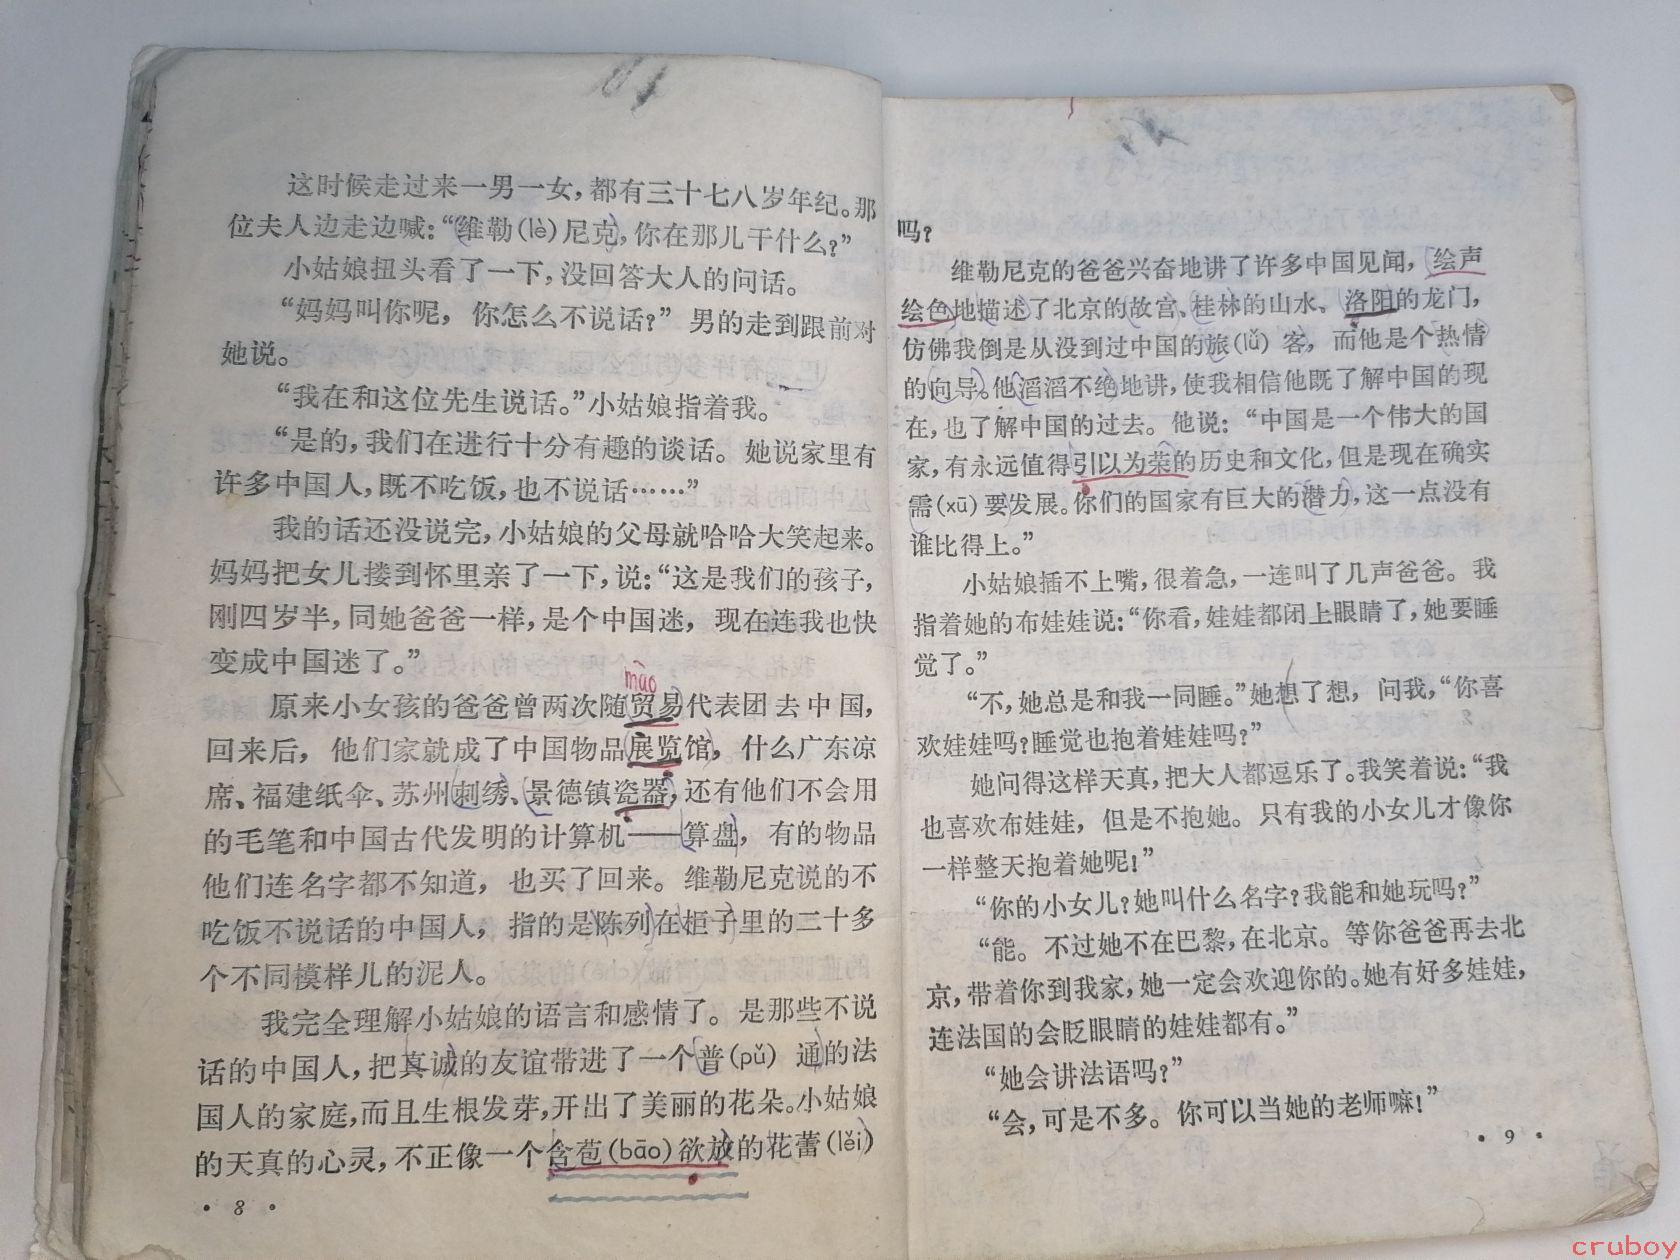 这时候走过来一男一女，都有三十七八岁年纪。那
位夫人边走边喊：“维勒(lè)尼克，你在那儿干什么？”
小姑娘扭头看了一下，没回答大人的问话。
“妈妈叫你呢，你怎么不说话？”男的走到跟前对
她说。
“我在和这位先生说话。”小姑娘指着我。
“是的，我们在进行十分有趣的谈话。她说家里有
许多中国人，既不吃饭，也不说话……”
我的话还没说完，小姑娘的父母就哈哈大笑起来。
妈妈把女儿搂到怀里亲了一下，说：“这是我们的孩子，
刚四岁半，同她爸爸一样，是个中国迷，现在连我也快
变成中国迷了。”
mào
原来小女孩的爸爸曾两次随贸易代表团去中国，
回来后，他们家就成了中国物品展览馆，什么广东凉
席、福建纸伞、苏州刺绣、景德镇瓷器，还有他们不会用
的毛笔和中国古代发明的计算机——算盘，有的物品
他们连名字都不知道，也买了回来。维勒尼克说的不
吃饭不说话的中国人，指的是陈列在柜子里的二十多
个不同模样儿的泥人。
我完全理解小姑娘的语言和感情了。是那些不说
话的中国人，把真诚的友谊带进了一个普(pǔ)通的法
国人的家庭，而且生根发芽，开出了美丽的花朵。小姑娘
的天真的心灵，不正像一个含苞(bāo)欲放的花蕾(lěi)
· 8 ·
吗？
维勒尼克的爸爸兴奋地讲了许多中国见闻，绘声
绘色地描述了北京的故宫、桂林的山水、洛阳的龙门，
仿佛我倒是从没到过中国的旅(lǚ)客，而他是个热情
的向导。他滔滔不绝地讲，使我相信他既了解中国的现
在，也了解中国的过去。他说：“中国是一个伟大的国
家，有永远值得引以为荣的历史和文化，但是现在确实
需(xū)要发展。你们的国家有巨大的潜力，这一点没有
谁比得上。”
小姑娘插不上嘴，很着急，一连叫了几声爸爸。我
指着她的布娃娃说：“你看，娃娃都闭上眼睛了，她要睡
觉了。”
“不，她总是和我一同睡。”她想了想，问我，“你喜
欢娃娃吗？睡觉也抱着娃娃吗？”
她问得这样天真，把大人都逗乐了。我笑着说：“我
也喜欢布娃娃，但是不抱她。只有我的小女儿才像你
一样整天抱着她呢！”
“你的小女儿？她叫什么名字？我能和她玩吗？”
“能。不过她不在巴黎，在北京。等你爸爸再去北
京，带着你到我家，她一定会欢迎你的。她有好多娃娃，
连法国的会眨眼睛的娃娃都有。”
“她会讲法语吗？”
“会，可是不多。你可以当她的老师嘛！”
· 9 ·
cruboy